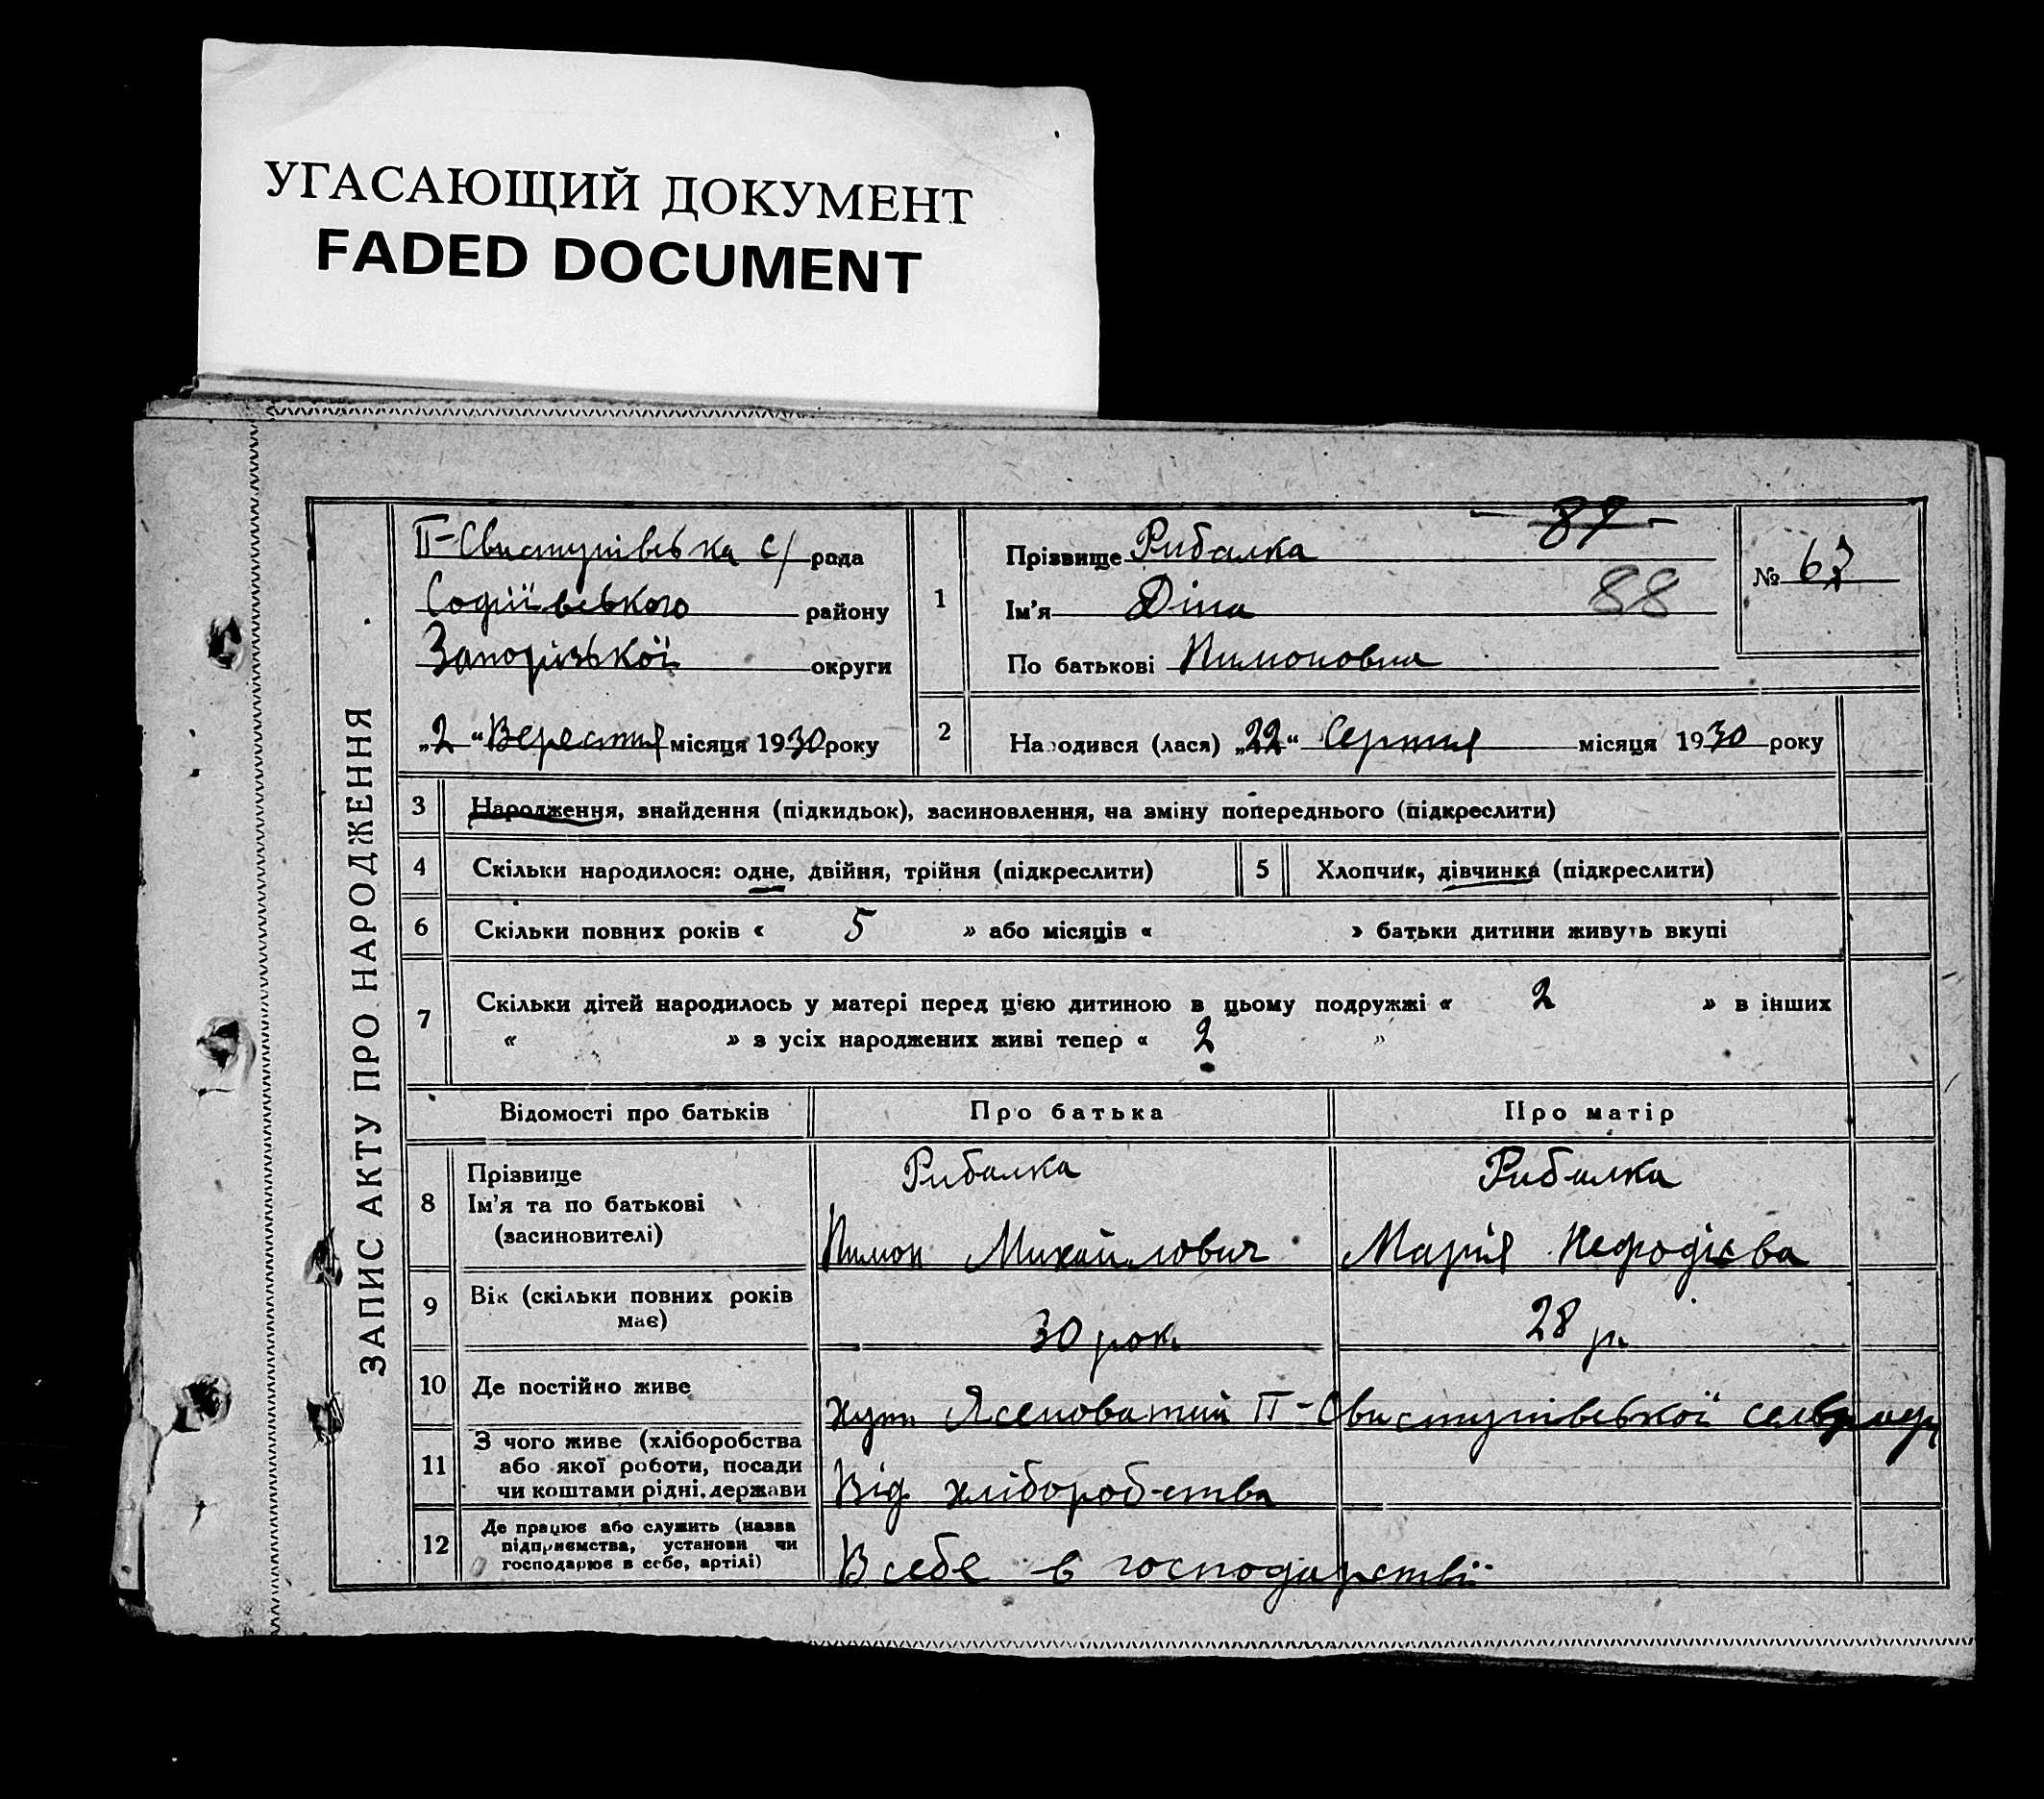 УГАСАЮЩИЙ ДОКУМЕНТ
FADED DOCUMENT
ЗАПИС АКТУ ПРО НАРОДЖЕННЯ
ІІ-Свистунівська с/рада
Софіївського району
Запорізької округи
„2“ Вересня місяця 1930 року
1
Прізвище Рибалка
Ім'я Діна
По батькові Пимоновна
87
88
№ 67
2
Народився (лася) „22“ Серпня місяця 1930 року
3 Народження, знайдення (підкидьок), засиновлення, на зміну попереднього (підкреслити)
4 Скільки народилося: одне, двійня, трійня (підкреслити)
5 Хлопчик, дівчинка (підкреслити)
6 Скільки повних років « 5 » або місяців « » батьки дитини живуть вкупі
7 Скільки дітей народилось у матері перед цією дитиною в цьому подружжі « 2 » в інших
« » з усіх народжених живі тепер « 2 »
Відомості про батьків Про батька Про матір
8 Прізвище
Ім'я та по батькові
(засиновителі)
Рибалка Рибалка
Пимон Михайлович Марія Нефодієва
9 Вік (скільки повних років
має)
30 рок. 28 р.
10 Де постійно живе
хут Ясеноватий ІІ-Свистунівської сельради
11 З чого живе (хліборобства
або якої роботи, посади
чи коштами рідні, держави
Від хліборобства
12 Де працює або служить (назва
підприємства, установи чи
господарює в себе, артілі)
В себе в господарстві